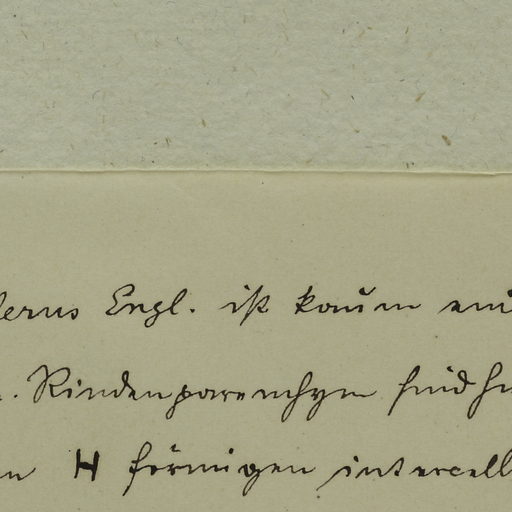 Engl. ist kaum
Rindenparenchym sind
H förmigen intercell